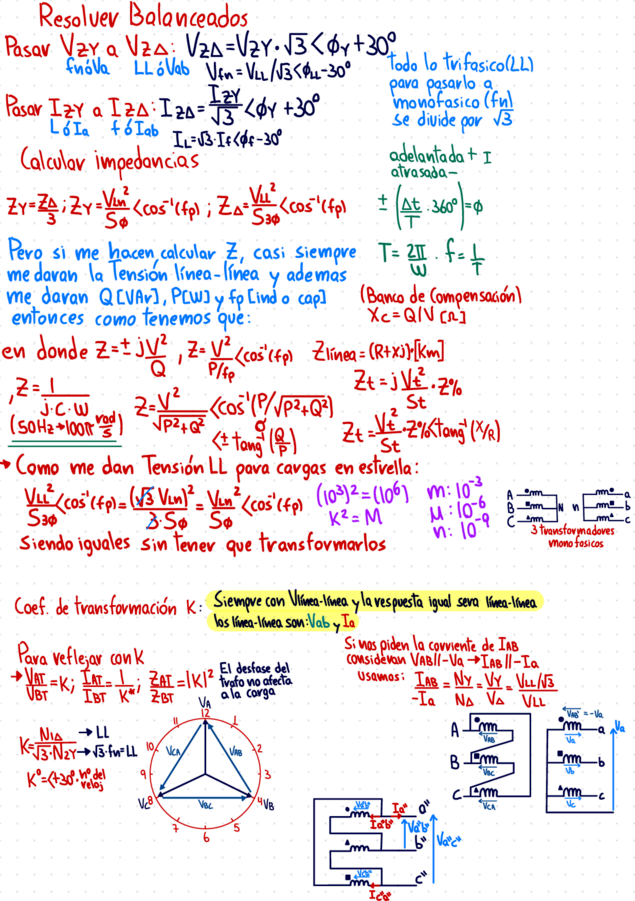 Resolver Balanceados
Pasar VZY a VZΔ: VZΔ=VZY·√3<ϕY+30°
fnóVa LLóVab Vfn=VLL/√3<ϕLL-30°
Todo lo trifasico(LL)
para pasarlo a
monofasico (fn)
se divide por √3
Pasar IZY a IZΔ: IZΔ=IZY/√3<ϕY+30°
LóIa fóIab IL=√3·If<ϕf-30°
Calcular impedancias
adelantada + I
atrasada -
ZY=ZΔ/3; ZY=VLn²/Sϕ<cos⁻¹(fp); ZΔ=VLL²/S3ϕ<cos⁻¹(fp)
±(Δt/T·360°)=ϕ
Pero si me hacen calcular Z, casi siempre
me daran la Tensión línea-línea y ademas
me daran Q[VAr], P[W] y fp[ind o cap]
entonces como tenemos que:
T=2π/W . f=1/T
(Banco de Compensación)
Xc=Q/V [Ω]
en donde Z=±jV²/Q, Z=V²/P/fp<cos⁻¹(fp) Zlinea=(R+Xj)·[Km]
, Z=1/j·C·W Z=V²/√P²+Q² <cos⁻¹(P/√P²+Q²) Zt=jVt²/St·Z%
(50Hz→100π rad/s) ó <±tang⁻¹(Q/P) Zt=Vt²/St·Z%<tang⁻¹(X/R)
→ Como me dan Tensión LL para cargas en estrella:
VLL²/S3ϕ<cos⁻¹(fp)=(√3 VLn)²/3·Sϕ=VLn²/Sϕ<cos⁻¹(fp)
(10³)²=(10⁶)
K²=M
m:10⁻³
μ:10⁻⁶
n:10⁻⁹
A
B
C
N n
a
b
c
3 transformadores
monofasicos
siendo iguales sin tener que transformarlos
Coef. de transformación K: Siempre con Vlínea-línea y la respuesta igual sera línea-línea
las línea-línea son: Vab y Ia
Para reflejar con K
→ VAT/VBT=K; IAT/IBT=1/K*; ZAT/ZBT=|K|²
El desfase del
trafo no afecta
a la carga
Si nos piden la corriente de IAB
consideran VAB//-Va→IAB//-Ia
usamos: IAB/-Ia=NY/NΔ=VY/VΔ=VLL/√3/VLL
K=N1Δ/√3·N2Y →LL →√3·fn=LL
K°=<+30°·n° del
reloj
VA
12
1
2
3
4
5
6
7
8
9
10
11
VCA
VAB
VBC
VC
VB
A
B
C
VAB
VBC
VCA
VAB=-Va
Va
Vb
Vc
a
b
c
Va
Va"b"
Ia"
a"
Ia"b"
Va"b"
b"
Va"c"
c"
Ic"a"